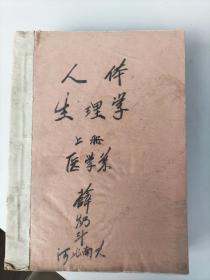 人体
生理学
上册
医学系
薛
斗
河北南大